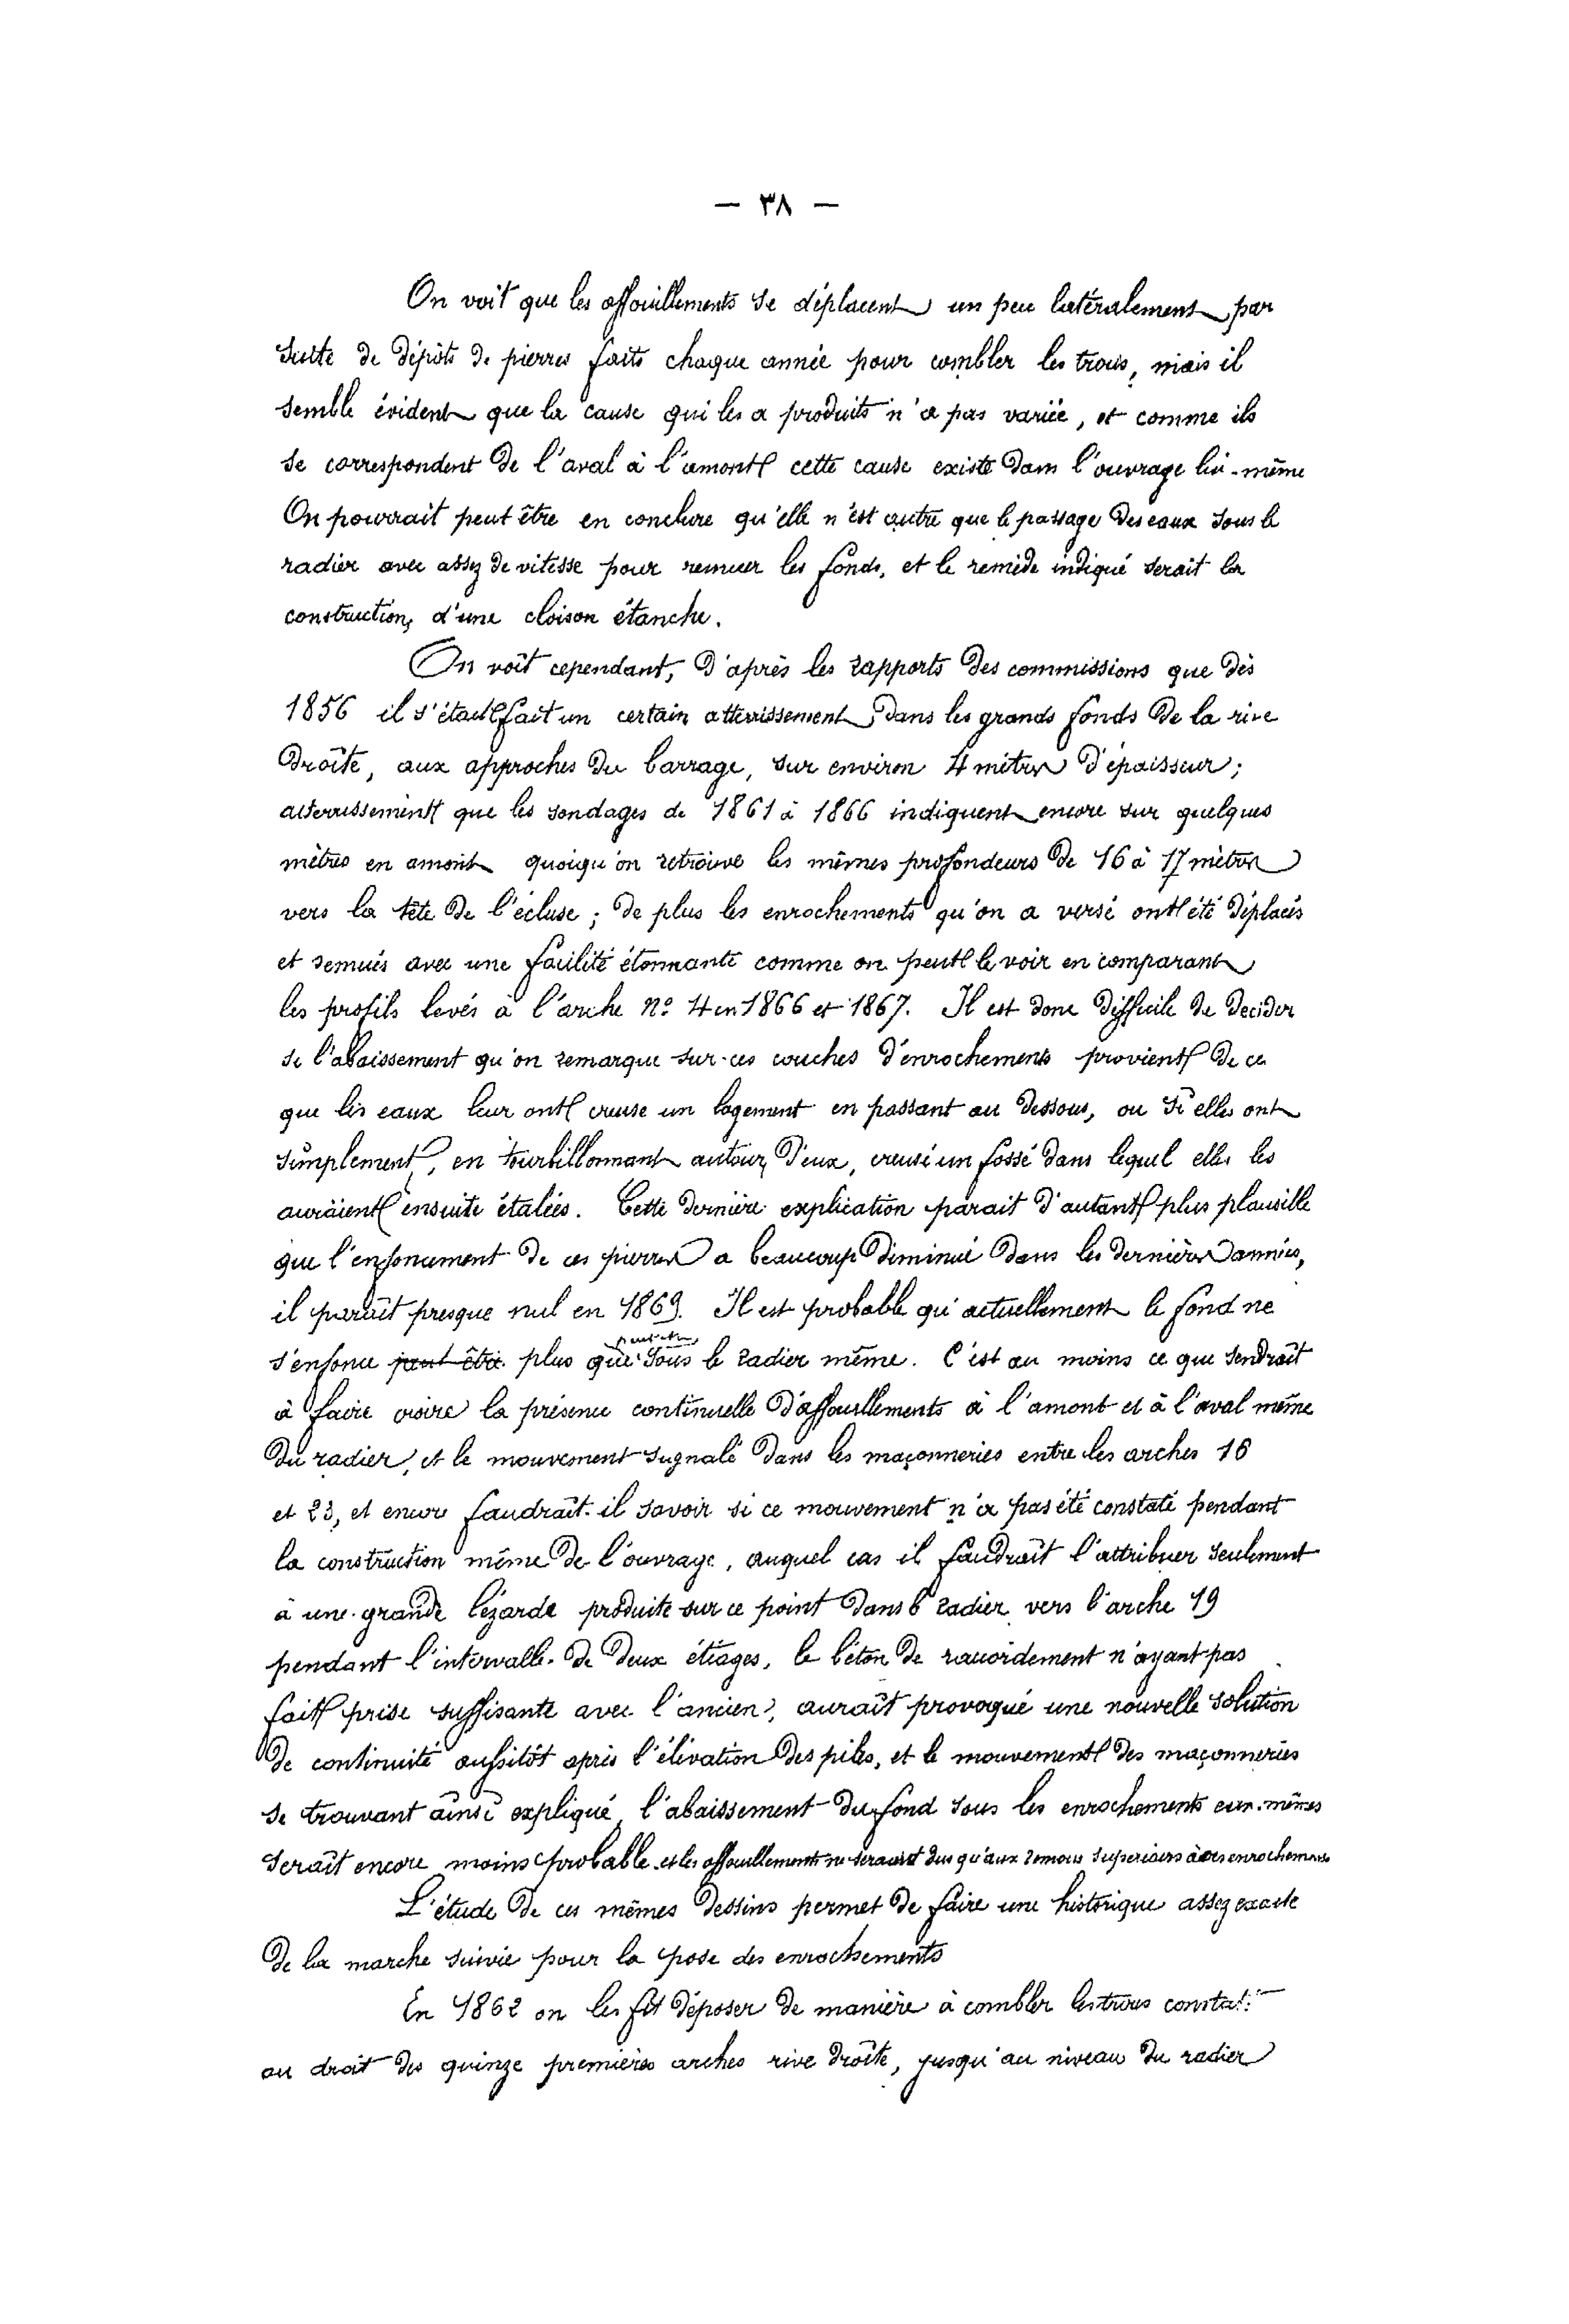 — ٣٨ —
On voit que les affouillements se déplacent un peu latéralement par
suite de dépôts de pierres faits chaque année pour combler les trous, mais il
semble évident que la cause qui les a produits n'a pas variée, et comme ils
se correspondent de l'aval à l'amont cette cause existe dans l'ouvrage lui-même
On pourrait peut être en conclure qu'elle n'est autre que le passage des eaux sous le
radier avec assez de vitesse pour remuer les fonds, et le remède indiqué serait la
construction, d'une cloison étanche.
On voit cependant, d'après les rapports des commissions que dès
1856 il s'était fait un certain atterrissement, dans les grands fonds de la rive
droite, aux approches du barrage, sur environ 4 mètres d'épaisseur;
atterrissement que les sondages de 1861 à 1866 indiquent encore sur quelques
mètres en amont quoiqu'on retrouve les mêmes profondeurs de 16 à 17 mètres
vers la tête de l'écluse; de plus les enrochements qu'on a versé ont été déplacés
et remués avec une facilité étonnante comme on peut le voir en comparant
les profils levés à l'arche No 4 en 1866 et 1867. Il est donc difficile de decider
si l'abaissement qu'on remarque sur ces couches d'enrochements provient de ce
que les eaux leur ont creuse un logement en passant au dessous, ou si elles ont
simplement, en tourbillonnant autour d'eux, creusé un fossé dans lequel elles les
auraient ensuite étalées. Cette dernière explication parait d'autant plus plausible
que l'enfoncement de ces pierres a beaucoup diminué dans les dernières années,
il paraît presque nul en 1869. Il est probable qu'actuellement le fond ne
s'enfonce peut être plus que peut être sous le radier même. C'est au moins ce que tendrait
à faire croire la présence continuelle d'affouillements à l'amont et à l'aval même
du radier, et le mouvement signalé dans les maçonneries entre les arches 16
et 23, et encore faudrait-il savoir si ce mouvement n'a pas été constaté pendant
la construction même de l'ouvrage, auquel cas il faudrait l'attribuer seulement
à une grande lézarde produite sur ce point dans le radier vers l'arche 19
pendant l'intervalle de deux étiages, le béton de raccordement n'ayant pas
fait prise suffisante avec l'ancien, aurait provoqué une nouvelle solution
de continuité aussitôt après l'élévation des piles, et le mouvement des maçonneries
se trouvant ainsi expliqué, l'abaissement du fond sous les enrochements eux-mêmes
serait encore moins probable et les affouillements ne seraient dus qu'aux remous superieurs à ces enrochements
L'étude de ces mêmes dessins permet de faire une historique assez exacte
de la marche suivie pour la pose des enrochements
En 1862 on les fit déposer de manière à combler les trous constatés
au droit des quinze premières arches rive droite, jusqu'au niveau du radier